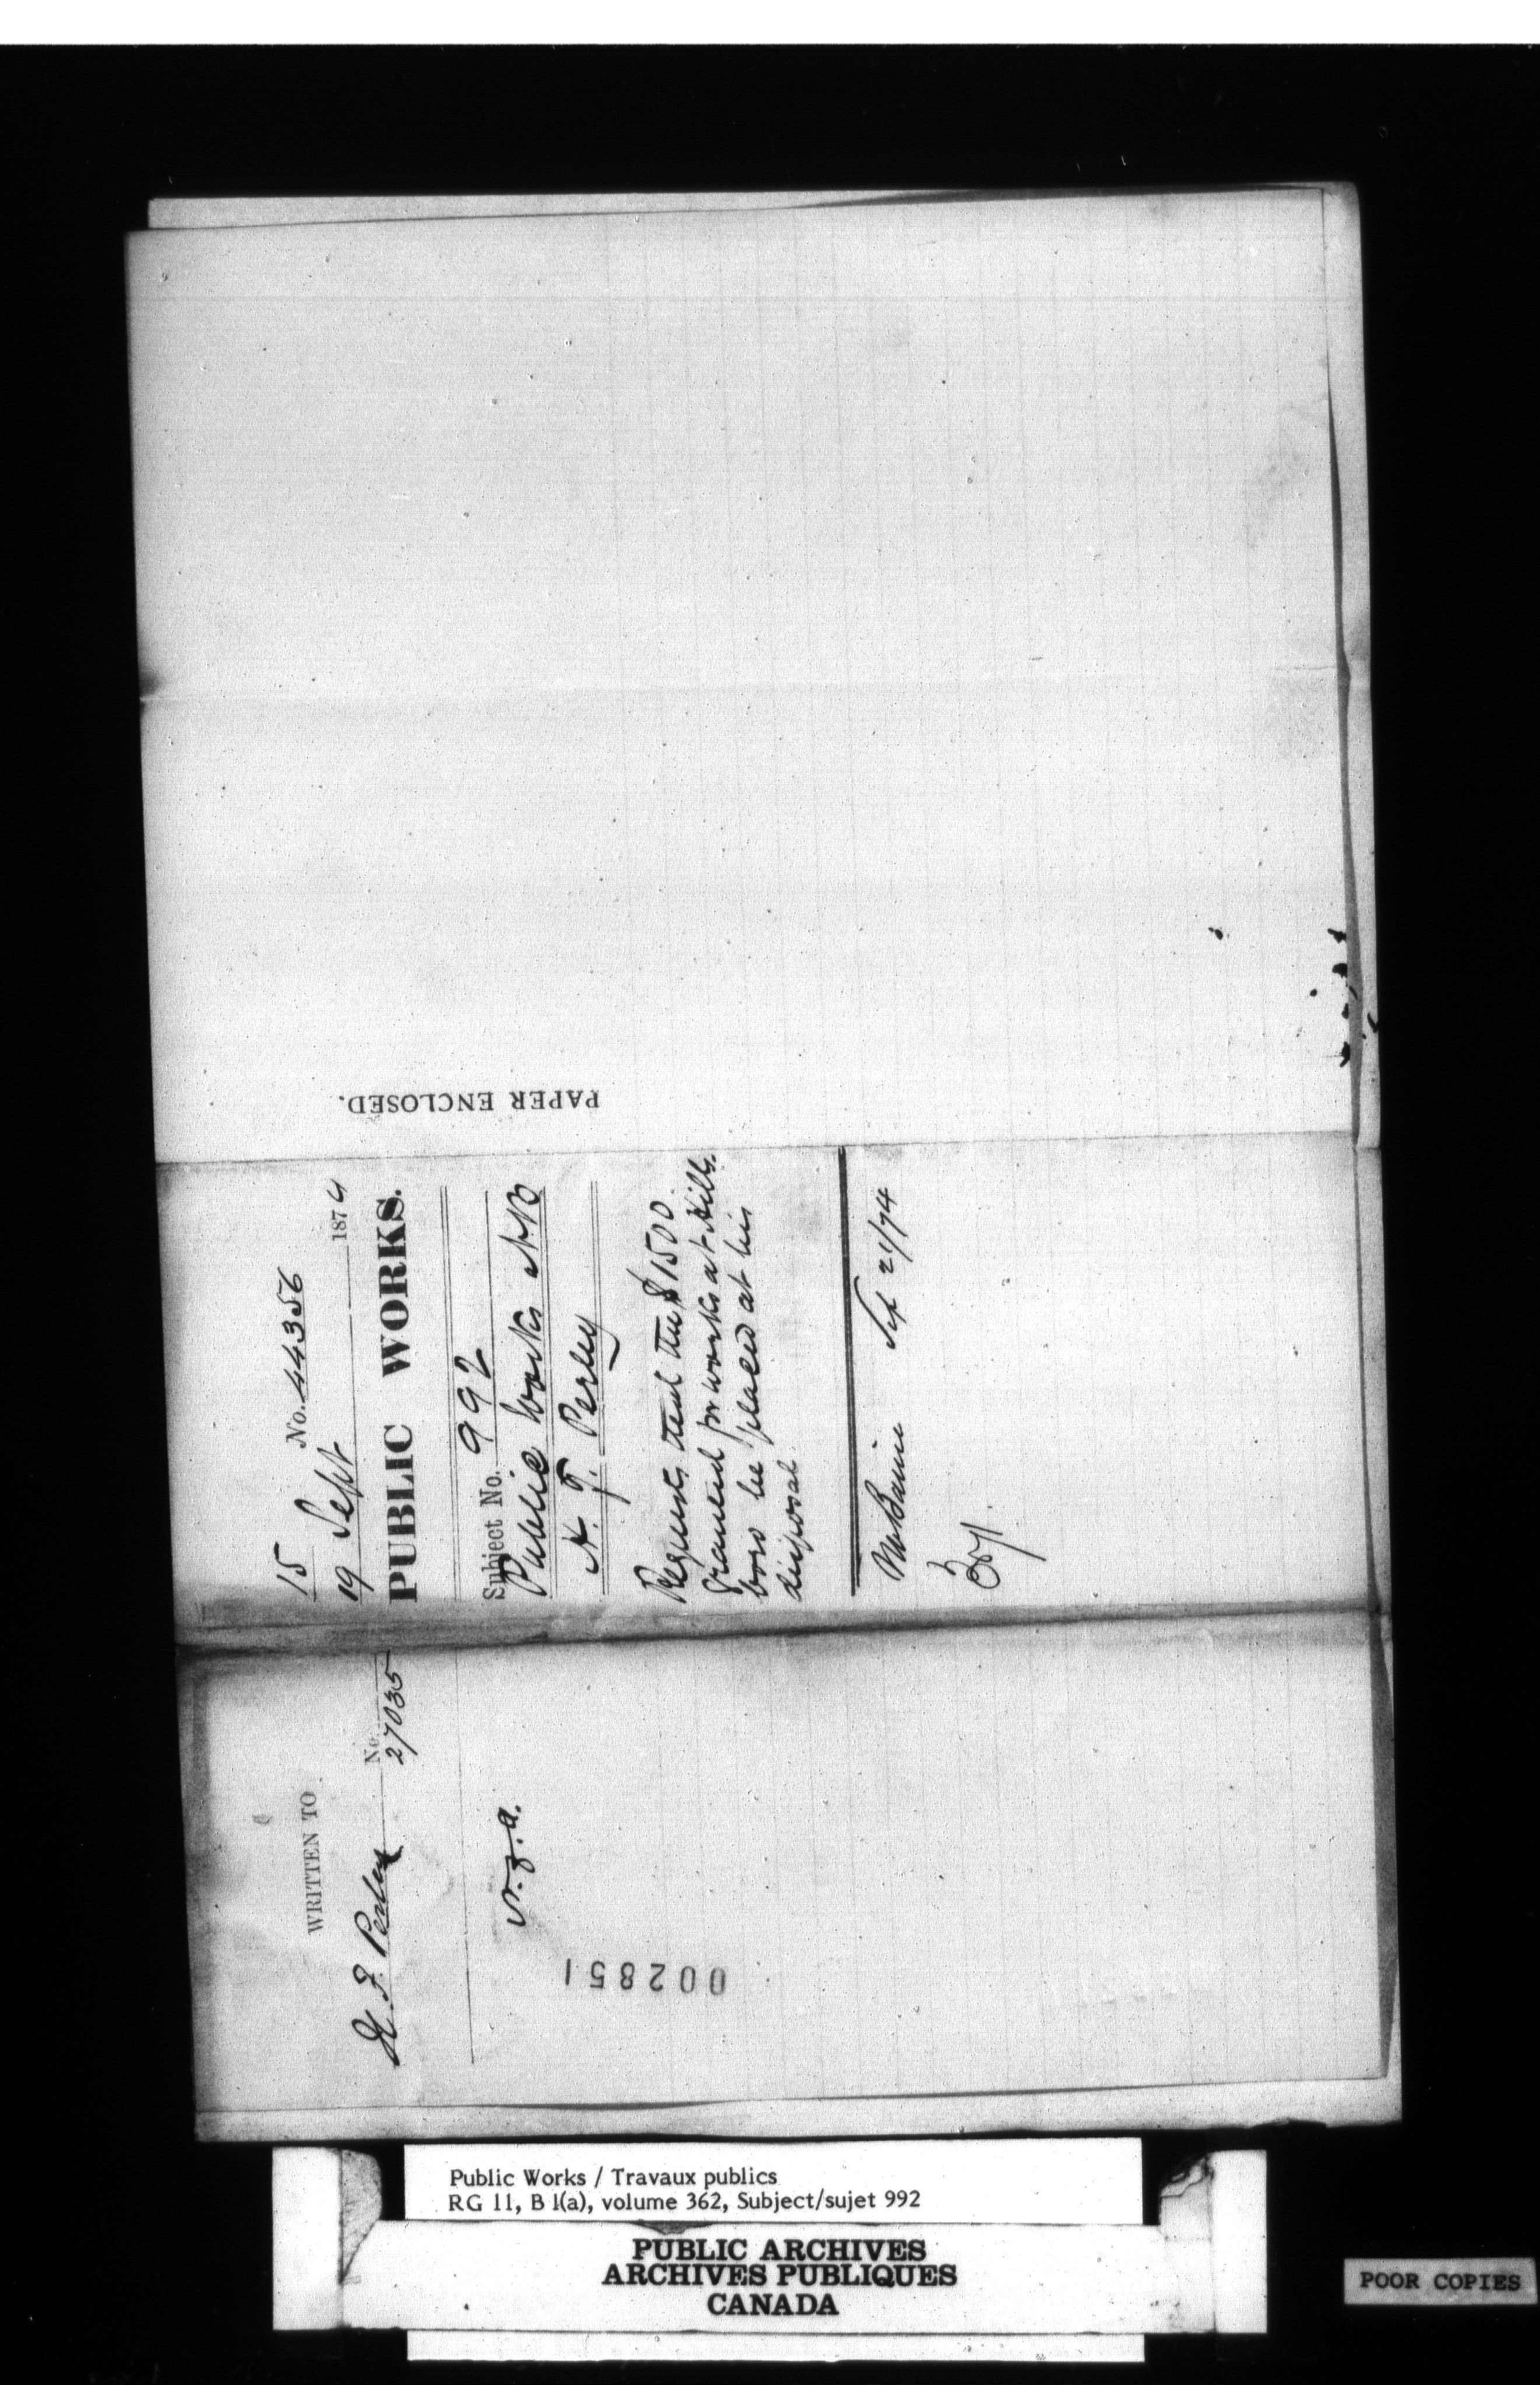 15 No. 44356
19 Sept 1874
PUBLIC WORKS.
Subject No. 992
Public Works N.B
H. F. Perley
Requests that the $1500
granted for works at Hills-
boro be placed at his
disposal.
Mr Baine Sep 21/74
PAPER ENCLOSED.
WRITTEN TO
H. F. Perley No. 27035
002851
Public Works / Travaux publics
RG 11, B 1(a), volume 362, Subject/sujet 992
PUBLIC ARCHIVES
ARCHIVES PUBLIQUES
CANADA
POOR COPIES